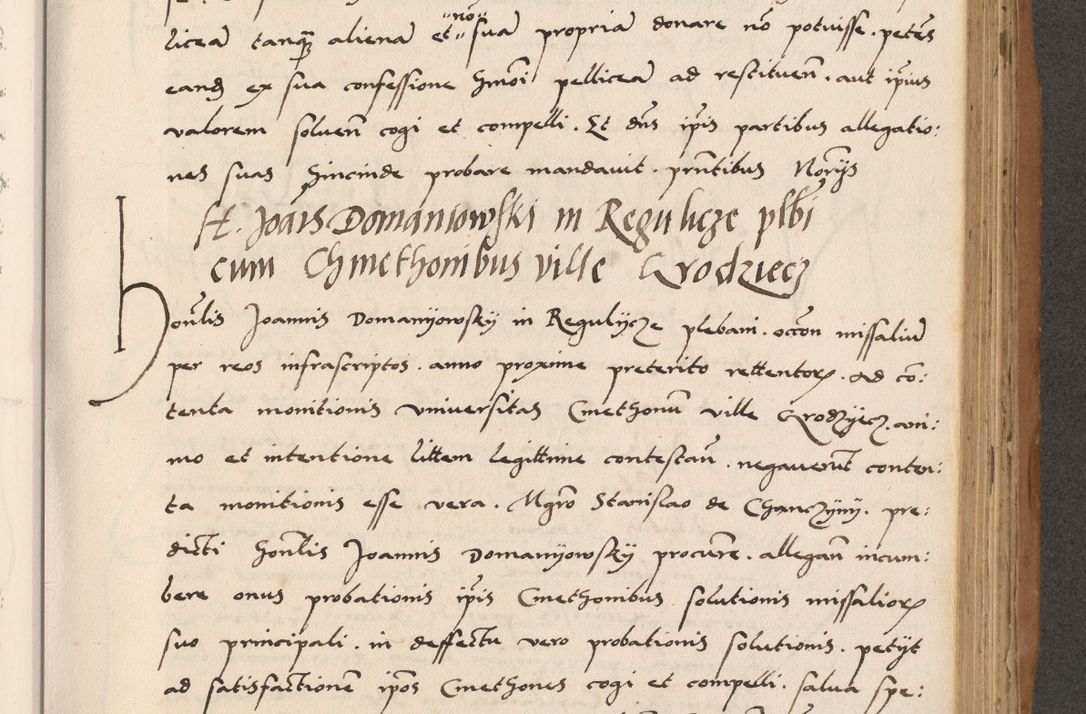 liceā tanqȝ alienā et "nō" suā propriā donare nō potuisse. petēs
eandȝ ex sua confessione hmōi pelliceā ad restituen̄. aut ip̄ius
valorem soluen̄ cogi et compelli. Et dn̄s ip̄is partibus allegatio:
nes suas hincinde probare mandauit. pn̄tibus Norijs
H. Joāis Domaniowski in Regulicze plbī
cum Chmethonibus ville Grodziecz
Hon̄lis Joannis Domanijowskij in Regulijcze plebani. occōn missaliū
per reos infrascriptos. anno proxime preterito rettentorꝝ. Ad cō:
tenta monitionis vniuersitas Cmethonū ville Grodzijecz. ani:
mo et intentione littem legittime contestan̄. negauerūt conten:
ta monitionis esse vera. Mgrō Stanislao de Chanczijnij. pre:
dicti hon̄lis Joannis Domanijowskij procurē. allegan̄ incum:
bere onus probationis ip̄is Cmethonibus solutionis missaliorꝝ
suo principali. in deffectu vero probationis solutionis. petijt
ad satisfactionē ip̄os Cmethones cogi et compelli. salua spe: